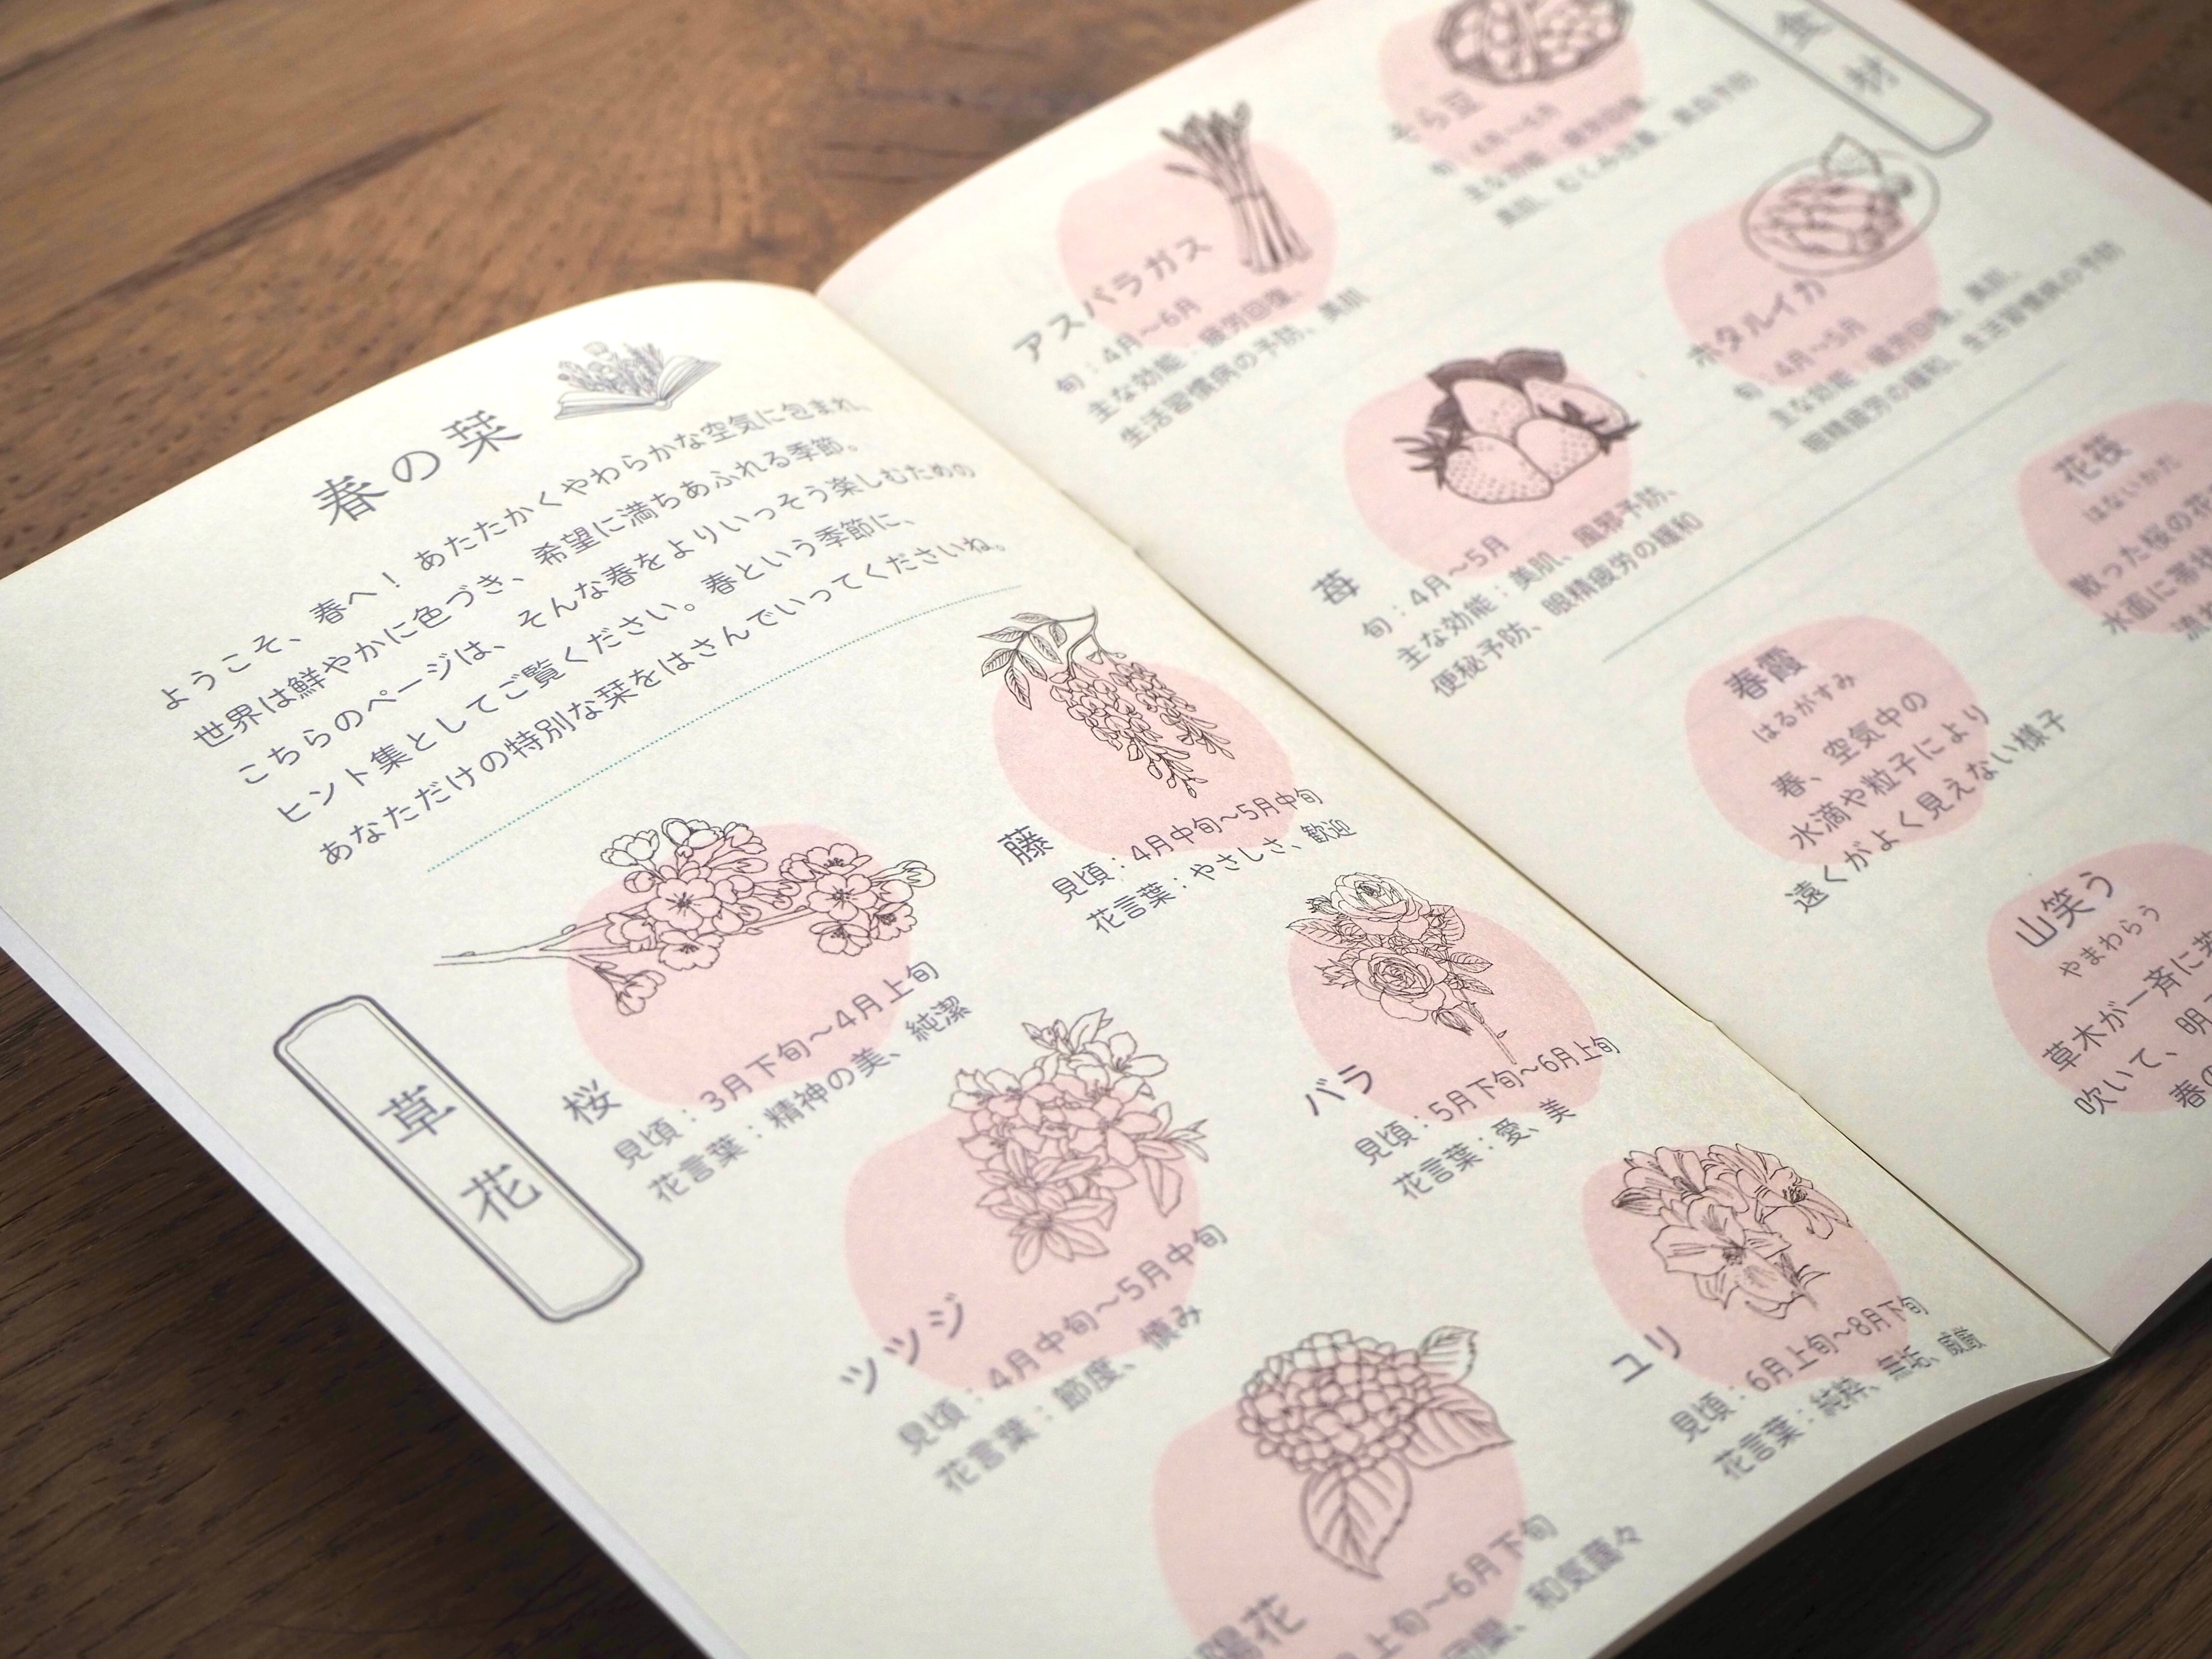 春の栞
ようこそ、春へ！ あたたかくやわらかな空気に包まれ、
世界は鮮やかに色づき、希望に満ちあふれる季節。
こちらのページは、そんな春をよりいっそう楽しむための
ヒント集としてご覧ください。春という季節に、
あなただけの特別な栞をはさんでいってくださいね。
草花
桜
見頃：3月下旬～4月上旬
花言葉：精神の美、純潔
藤
見頃：4月中旬～5月中旬
花言葉：やさしさ、歓迎
ツツジ
見頃：4月中旬～5月中旬
花言葉：節度、慎み
バラ
見頃：5月下旬～6月上旬
花言葉：愛、美
陽花
上旬～6月下旬
和気藹々
ユリ
見頃：6月上旬～8月下旬
花言葉：純粋、無垢、
食材
アスパラガス
旬：4月～6月
主な効能：疲労回復、
生活習慣病の予防、美肌
そら豆
旬：4月～6月
主な効能：疲労回復、
美肌、むくみ改善、貧血予防
苺
旬：4月～5月
主な効能：美肌、風邪予防、
便秘予防、眼精疲労の緩和
ホタルイカ
旬：4月～5月
主な効能：疲労回復、美肌、
眼精疲労の緩和、生活習慣病の予防
春霞
はるがすみ
春、空気中の
水滴や粒子により
遠くがよく見えない様子
花筏
はないかだ
散った桜の花
水面に帯状
流
山笑う
やまわらう
草木が一斉に芽
吹いて、明
春の